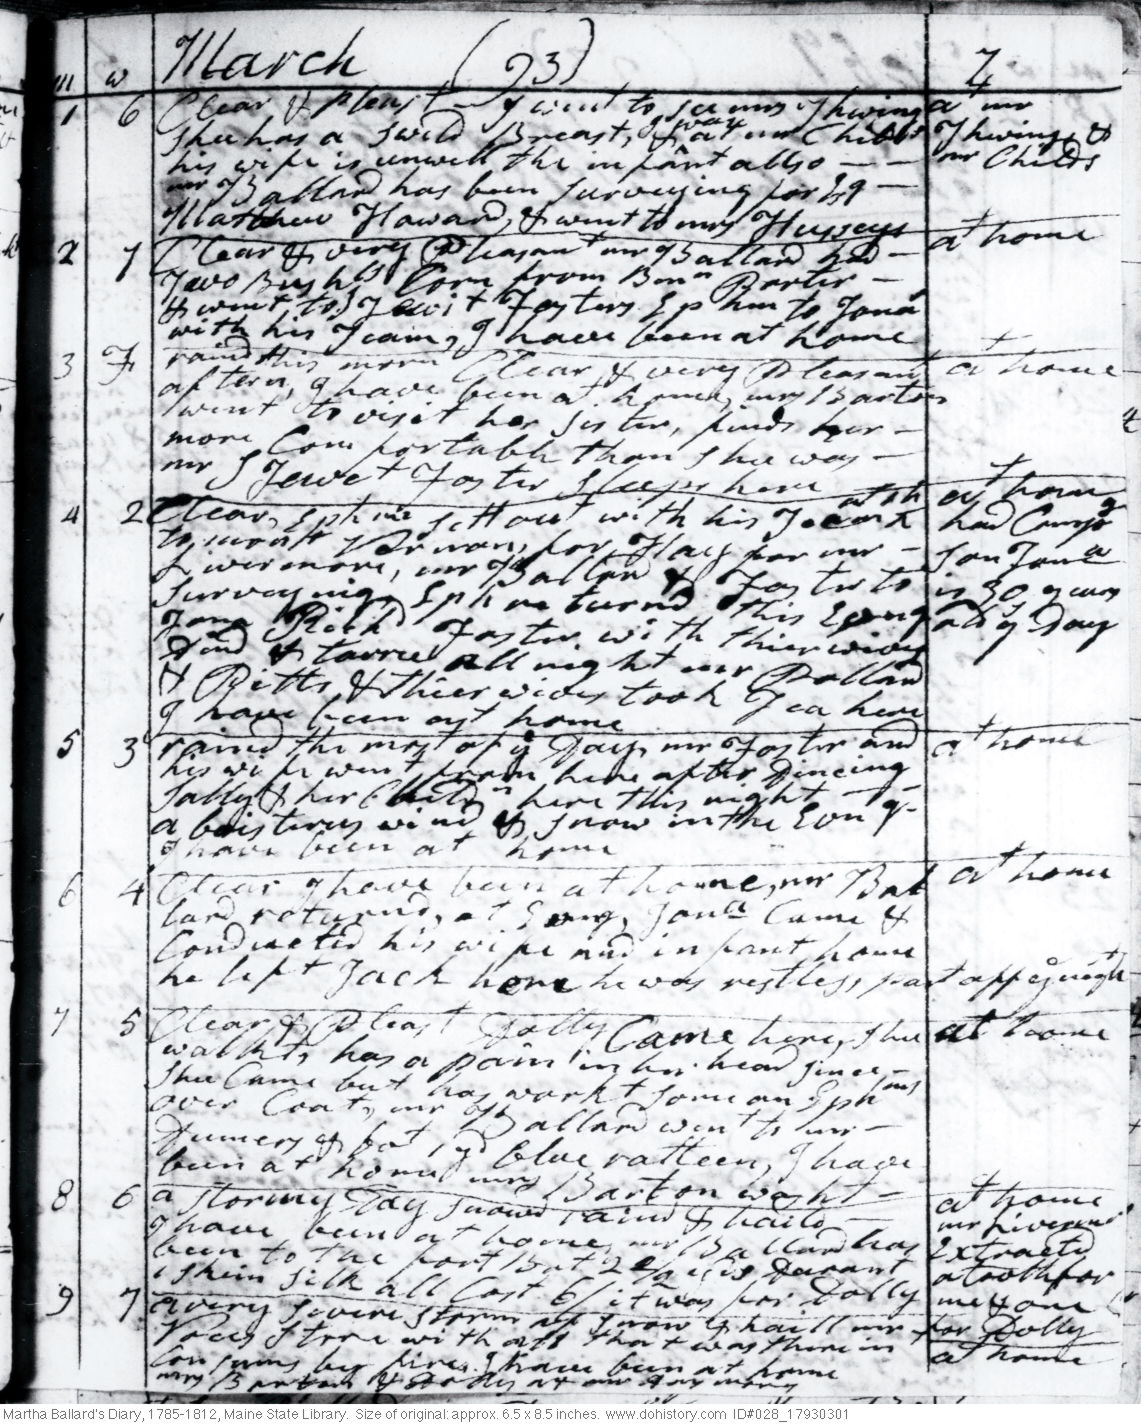 m w March (93) 7
1 6 Clear & pleast I went to see mrs Thwing at mr
shee has a swild Breast, I was at mr Childs Thwings &
his wife is unwell the infant allso — — mr Childs
mr Ballard has been surveying for Esq —
Matthew Haward, & went to mrs Husseys
2 7 Clear & very Pleasant mr Ballard had — at home
Two Bushls Corn from Bmn Porter —
& went to S Jewit Fosters Ephm to Jona
with his Team, I have been at home
3 F raind this morn Clear & very Pleasant at home
aftern, I have been at home, mrs Barton
went to visit her sister, finds her —
more Comfortable than shee was —
mr S Jewet Foster sleeps here
4 2 Clear, Ephm sett out with his Team at home
to mount Vernon, for Hay for mr — had Comp
Livermore, mr Ballard & Foster to son Jona
surveying, Ephm returnd this Evng is 30 years
Jona Richd Foster with thier wives old ys Day
dind & tarried all night mr Pollard
& Pitts & thier wives took Tea here
I have been at home
5 3 raind the most of ye Day, mr Foster and at home
his wife went from here after dineing
Sally & her Childn here this night —
a boisterus wind & snow in the Evng —
I have been at home
6 4 Clear I have been at home, mr Bal at home
lard returnd, at Evng, Jona Came &
Conducted his wife and infant home
he left Jack here he was restless part off ye night
7 5 Clear & Pleast Dolly Came here, shee at home
walkt, has a pain in her head since —
shee Came but has workt some on Ephms
over Coat, mr Ballard went to mr —
& bot yd blue ratteen, I have
been at home mrs Barton washt —
8 6 a stormy Day snowd raind & haild — at home
I have been at home, mr Ballard has mr Livermore
been to the fort Bot Extracted
1 skein silk all Cost 6/ it was for Dolly a tooth for
me & one
9 7 a very severe storm of snow & hail mr for Dolly
Store with all that was therein at home
Consumd by fire, I have been at home